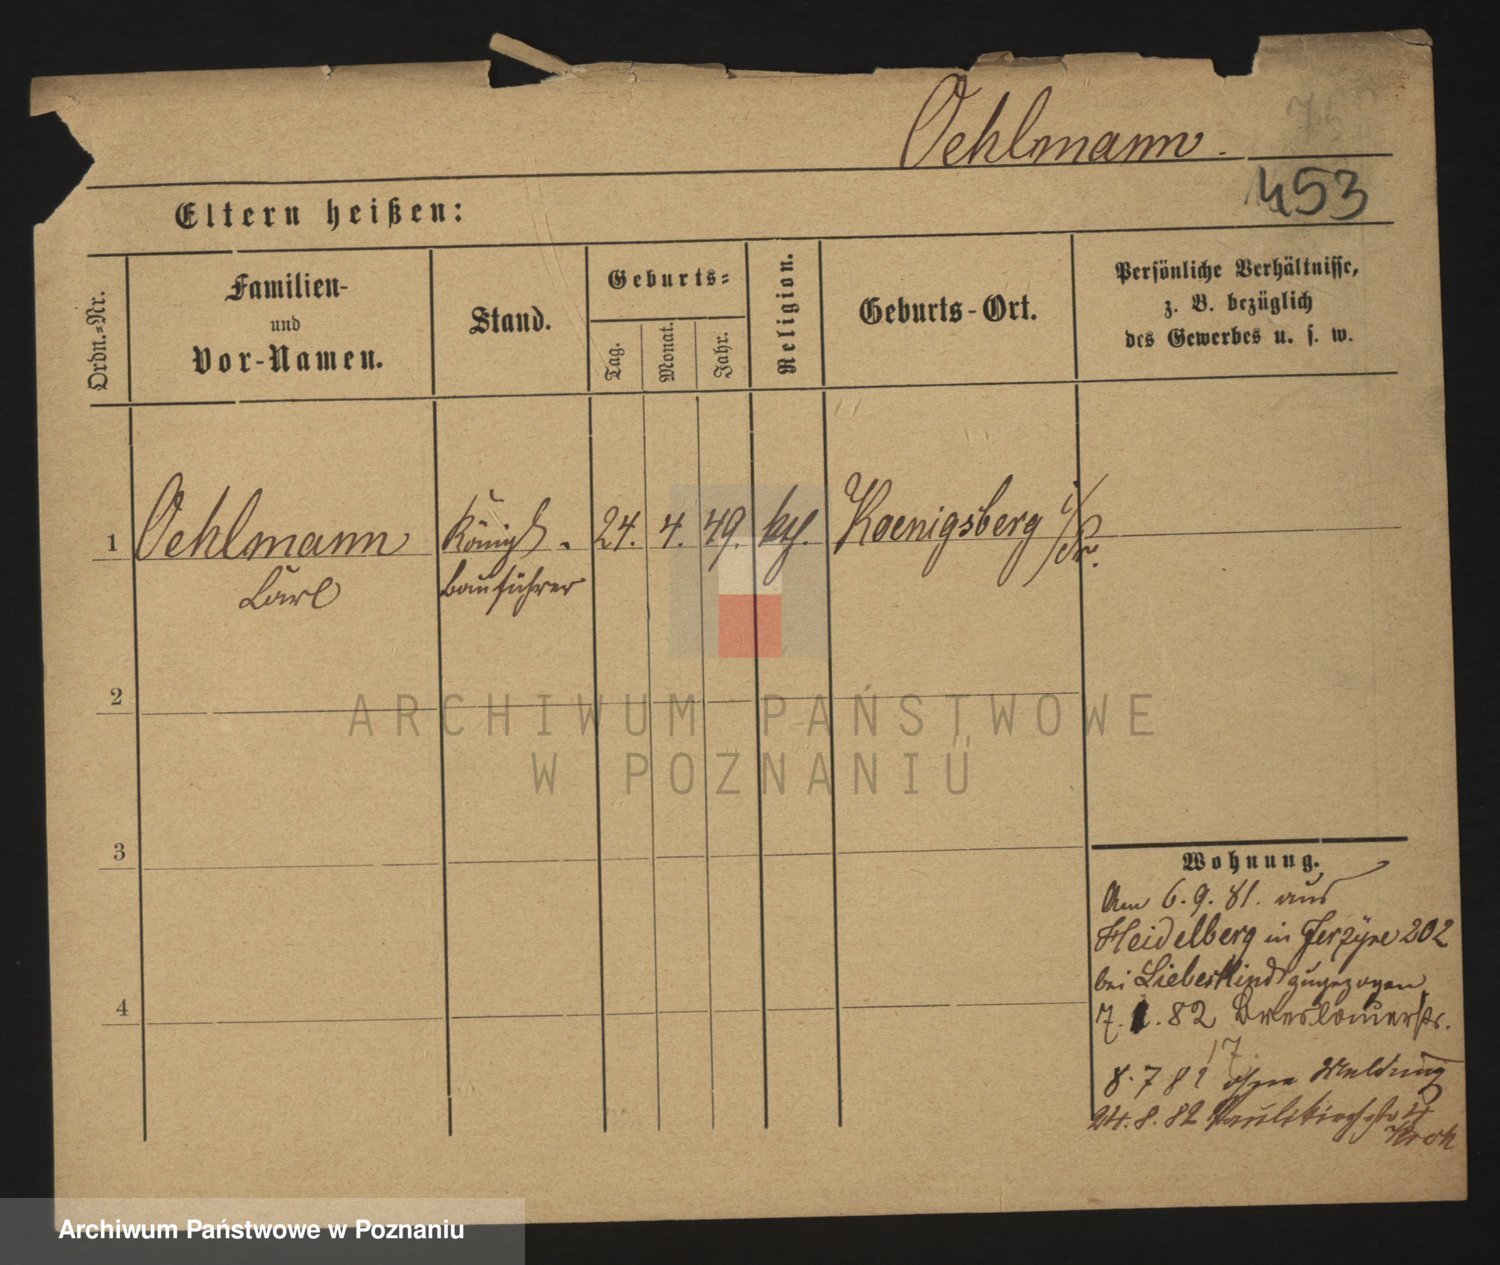 Oehlmann.
453
Eltern heißen:
Ordn.=Nr.
Familien-
und
Vor-Namen.
Stand.
Geburts=
Tag.
Monat.
Jahr.
Religion.
Geburts-Ort.
Persönliche Verhältnisse,
z. B. bezüglich
des Gewerbes u. s. w.
1 Oehlmann Königl. 24. 4. 49. kth. Koenigsberg i/Pr.
Carl Bauführer
2
3
4
Wohnung.
Am 6.9.81. aus
Heidelberg in Jerzyce 202
bei Lieberkind zugezogen
7. 1. 82 Breslauerstr.
17
8.7 82 ohne Meldung
24.8.82 Paulikirchstr 4
ARCHIWUM PAŃSTWOWE
W POZNANIU
Archiwum Państwowe w Poznaniu